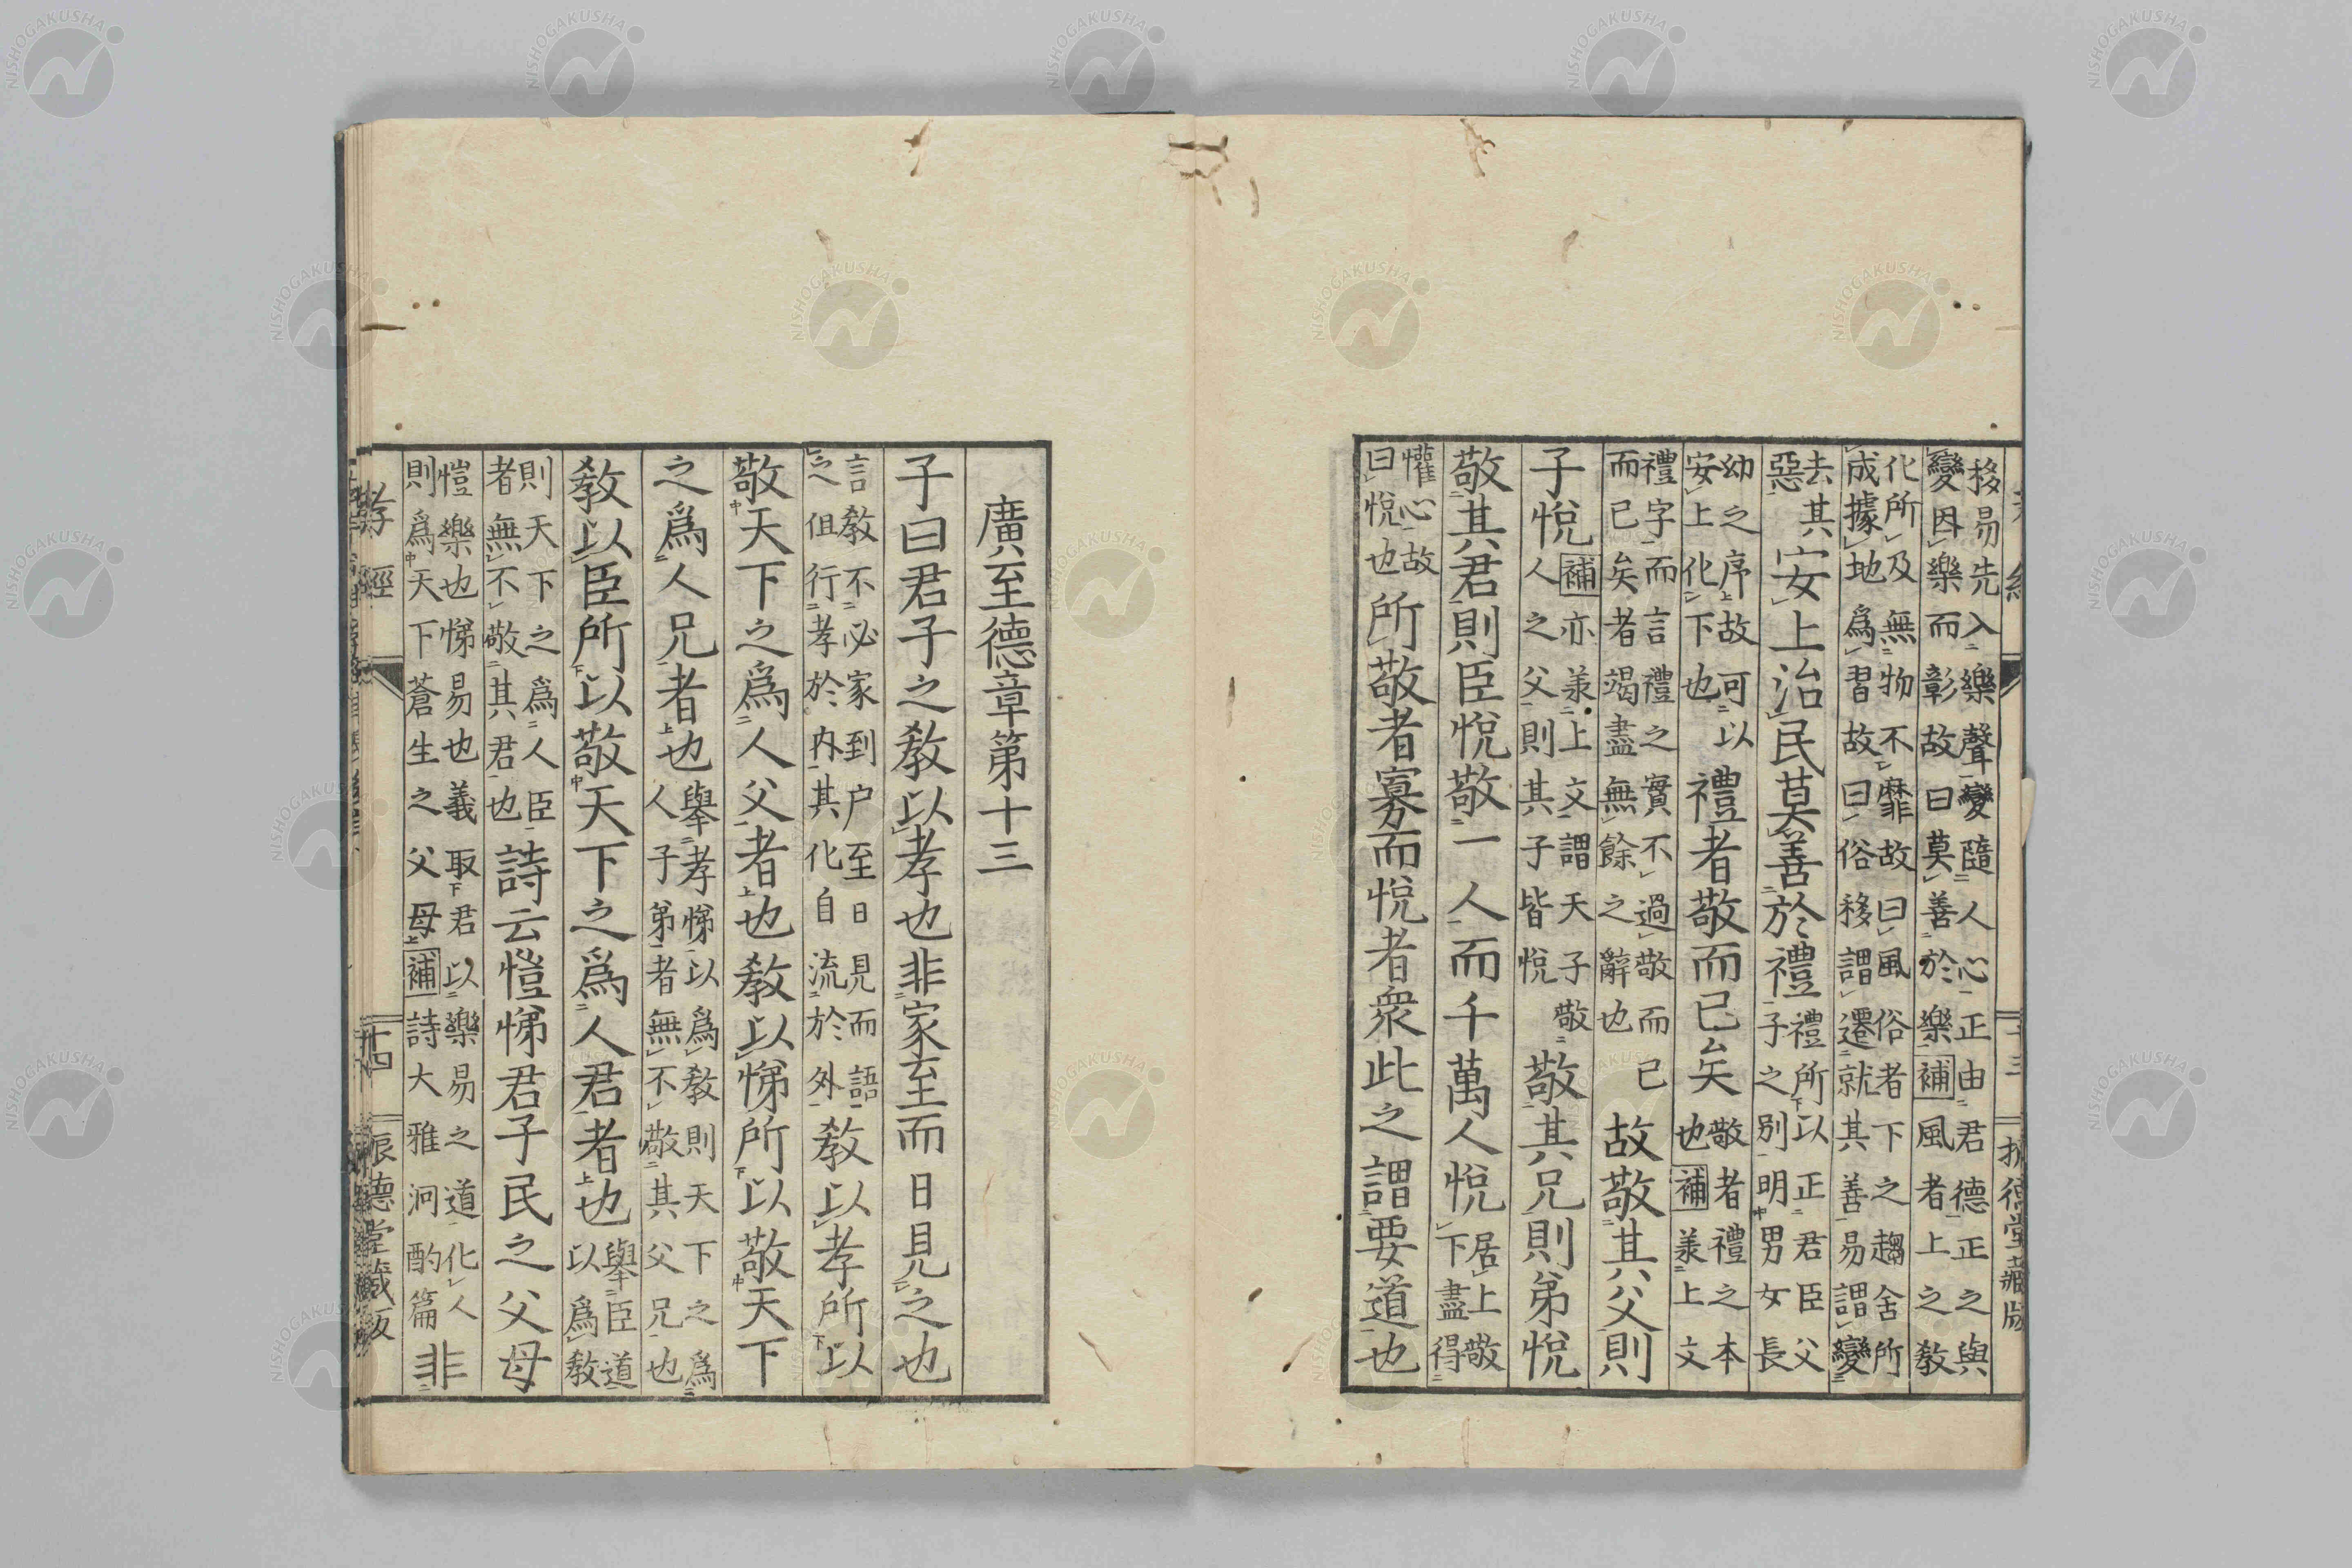 移易先入樂聲變隨人心正由君德正之與
變因樂而彰故曰莫善於樂補風者上之教
化所及無物不靡故曰風俗者下之趨舍所
成據地爲習故曰俗移謂遷就其善易謂變
去其
惡
安上治民莫善於禮
禮所以正君臣父
子之別明男女長
幼之序故可以
安上化下也
禮者敬而已矣
敬者禮之本
也補羕上文
禮字而言禮之實不過敬而已
而已矣者竭盡無餘之辭也
故敬其父則
子悅
補亦羕上文謂天子敬
人之父則其子皆悅
敬其兄則弟悅
敬其君則臣悅敬一人而千萬人悅
居上敬
下盡得
懽心故
曰悅也
所敬者寡而悅者衆此之謂要道也
廣至德章第十三
子曰君子之教以孝也非家至而日見之也
言教不必家到户至日見而語
之但行孝於内其化自流於外
教以孝所以
敬天下之爲人父者也教以悌所以敬天下
之爲人兄者也
舉孝悌以爲教則天下之爲
人子弟者無不敬其父兄也
教以臣所以敬天下之爲人君者也
舉臣道
以爲教
則天下之爲人臣
者無不敬其君也
詩云愷悌君子民之父母
愷樂也悌易也義取君以樂易之道化人
則爲天下蒼生之父母補詩大雅泂酌篇
非
孝經
十四